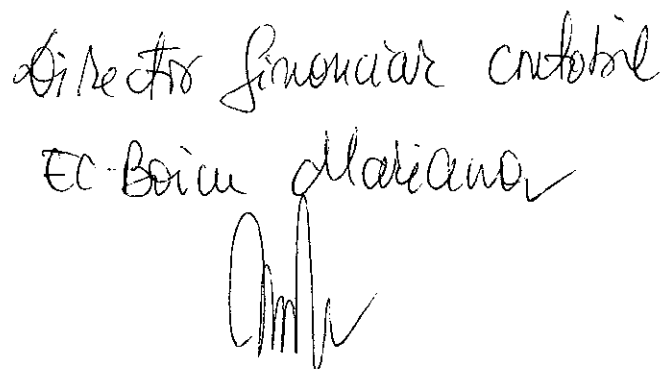 Director financiar contabil
EC. Boicu Mariana